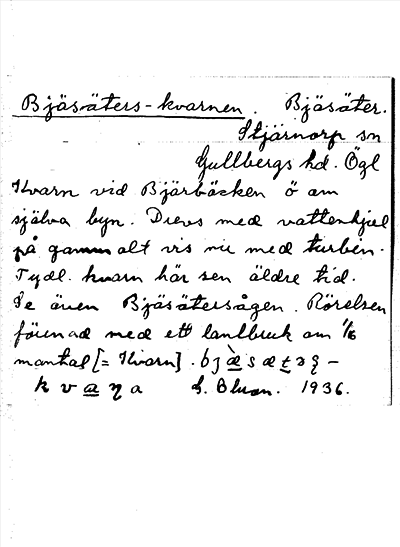 Bjäsäters-kvarnen. Bjäsäter.
Stjärnorp sn
Gullbergs hd. Ögl
Kvarn vid Bjärbäcken ö om
själva byn. Drevs med vattenhjul
på gammalt vis nu med turbin.
Tydl. kvarn här sen äldre tid.
Se även Bjäsätersågen. Rörelsen
förenad med ett lantbruk om 1/16
mantal [= Kvarn]. bjæ̀sætəʂ-
kvaɳa 1936.